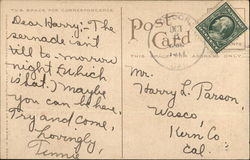 THIS SPACE FOR CORRESPONDENCE
Dear Harry:- The
sernade isn't
till to-morrow
night (which
is Sat.) maybe
you can be here.
Try and come,
Lovingly,
Tennie
Post Card
THIS SPACE FOR ADDRESS
Mr.
Harry L. Parson,
Wasco,
Kern Co.
Cal.